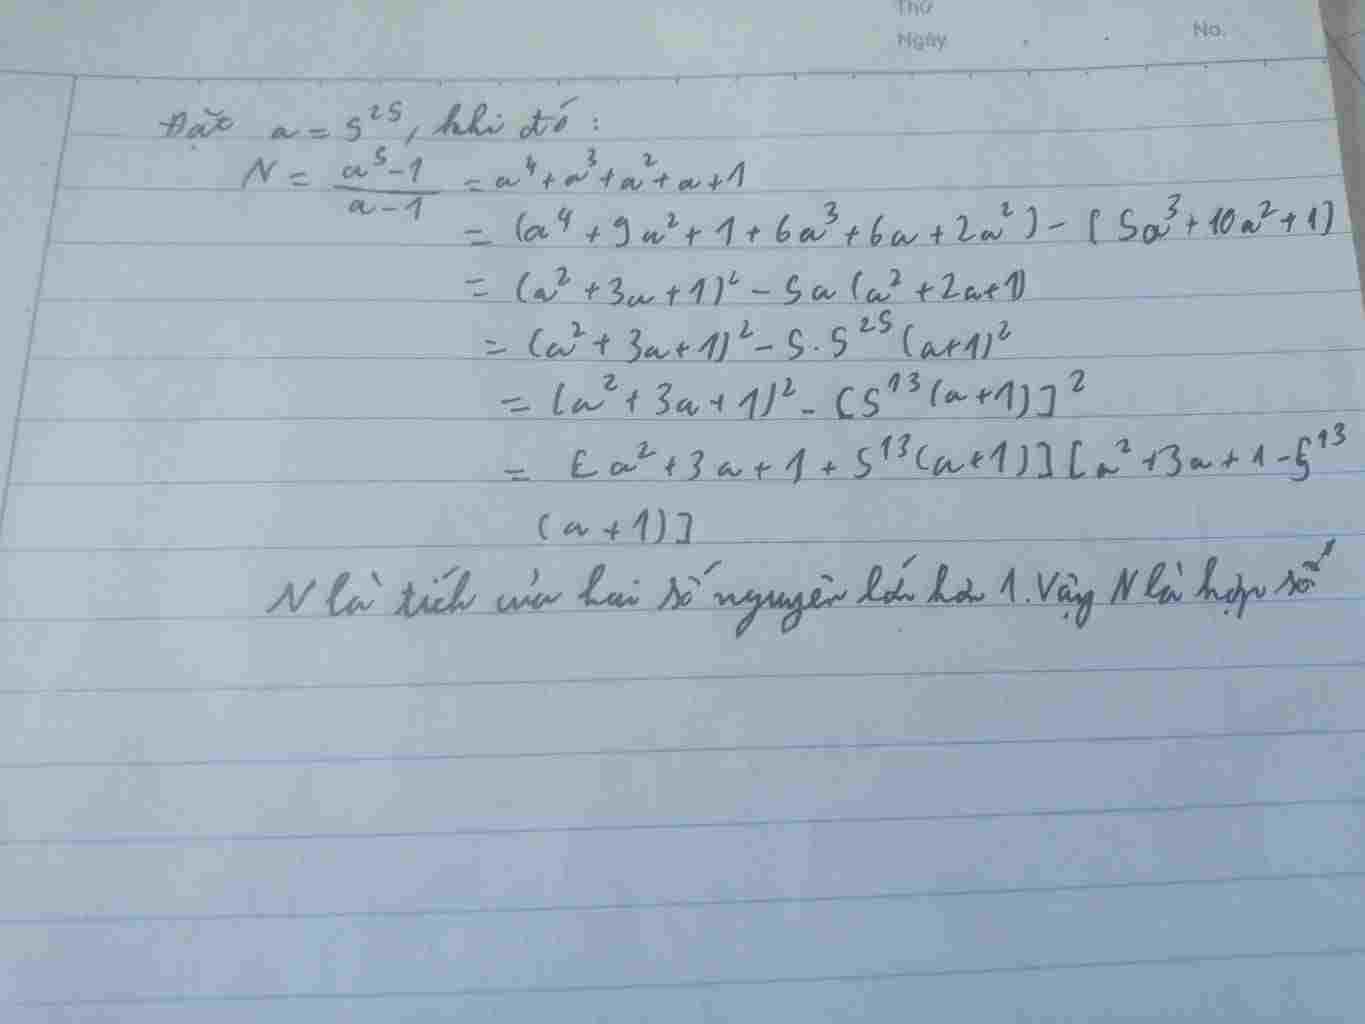 Thứ
Ngày No.
Đặt a = 5^25, khi đó:
N = \frac{a^5-1}{a-1} = a^4 + a^3 + a^2 + a + 1
= (a^4 + 9a^2 + 1 + 6a^3 + 6a + 2a^2) - [5a^3 + 10a^2 + 1]
= (a^2 + 3a + 1)^2 - 5a (a^2 + 2a + 1)
= (a^2 + 3a + 1)^2 - 5.5^25 (a+1)^2
= (a^2 + 3a + 1)^2 - [5^13 (a+1)]^2
= [a^2 + 3a + 1 + 5^13 (a+1)] [a^2 + 3a + 1 - 5^13
(a + 1)]
N là tích của hai số nguyên lớn hơn 1. Vậy N là hợp số